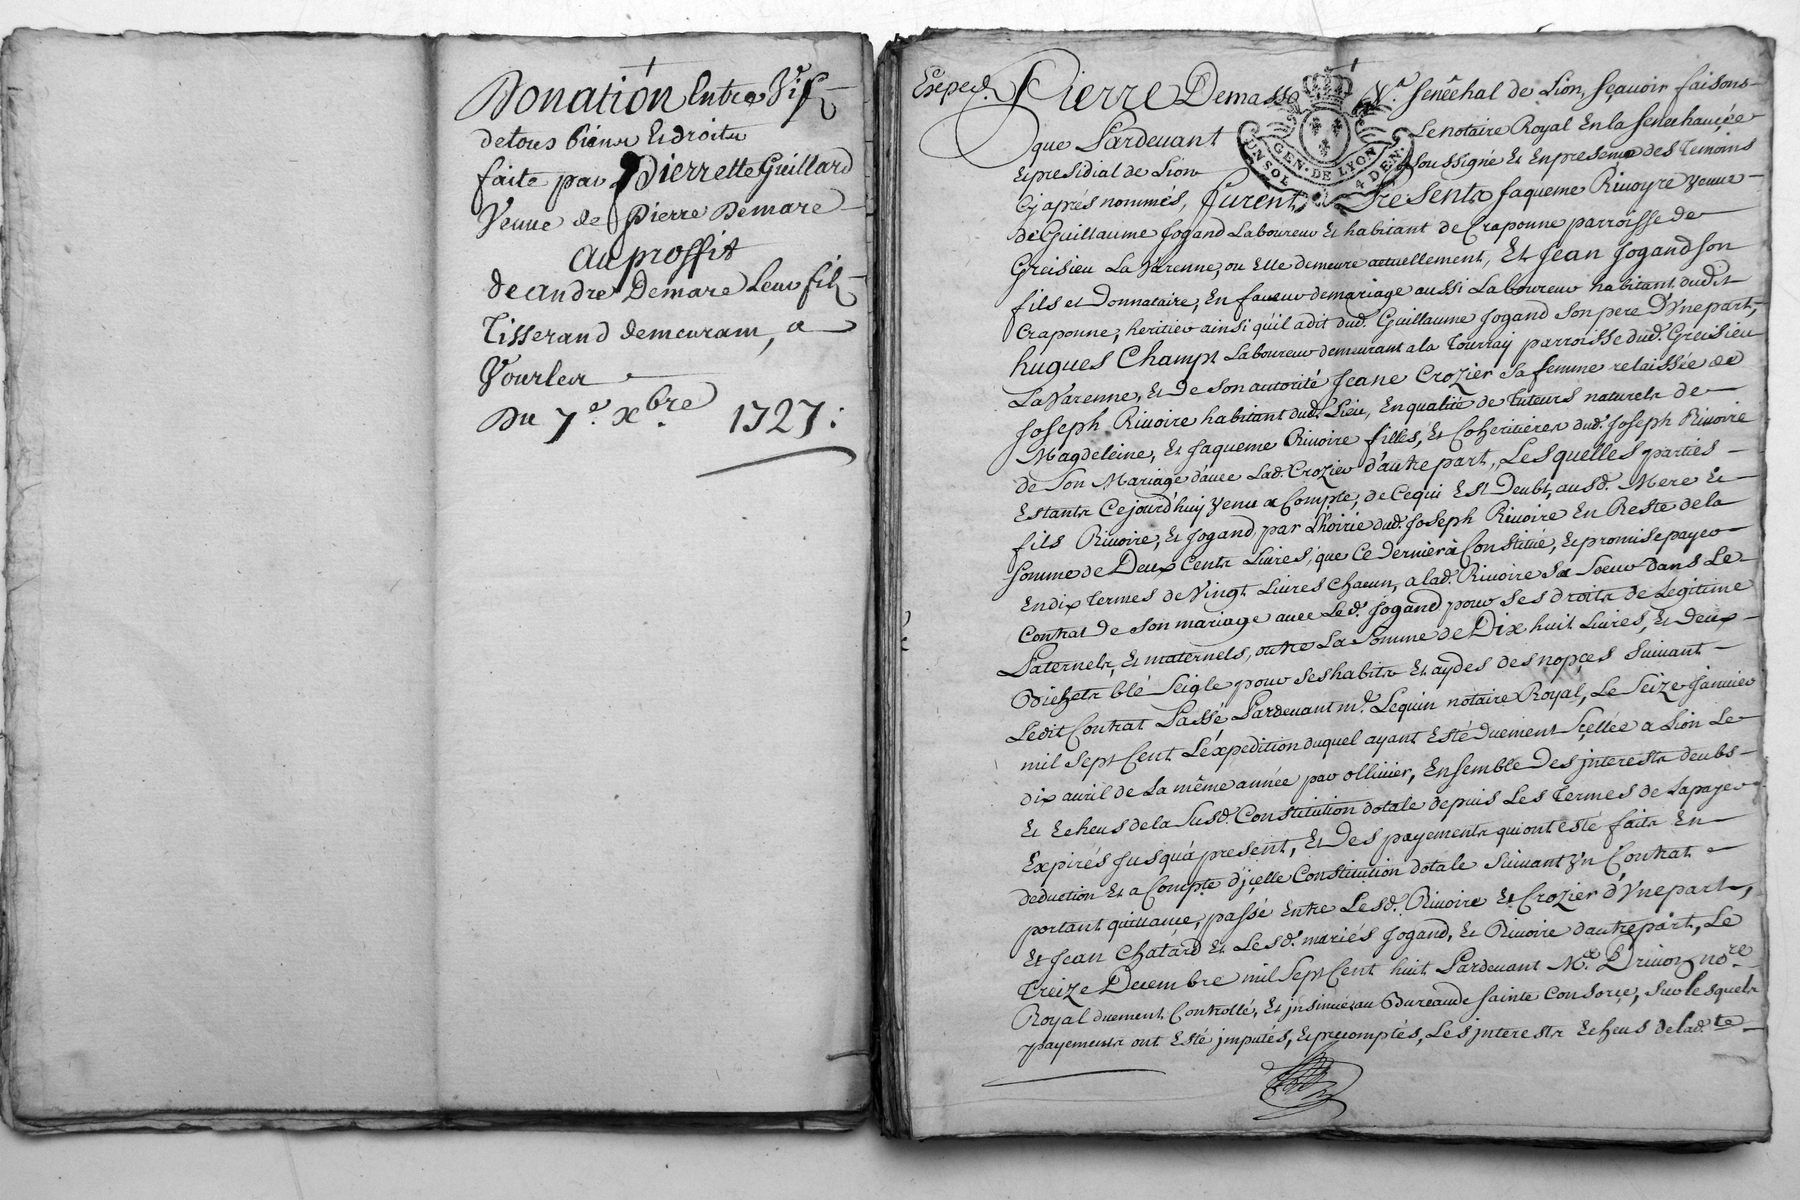 Donation Entre Vifs
de tous biens Et droits
faite par Pierrette Guillard
Veuue de Pierre Demare
Au proffit
de andre Demare Leur fils
Tisserand demeurant, a
Vourles
Du 7e. xbre. 1727.
Exped.
Pierre Demasso Senêchal de Lion, Sçauoir faisons
que Pardeuant Le notaire Royal En la Senechauçée
Et presidial de Lion soussigné Et En presence des Temoins
Cy aprés nommés, Furent Presents Jaqueme Riuoyre Veuue
de Guillaume Jogand Laboureur Et habitant de Craponne parroisse de
Greisieu La Varenne, ou Elle demeure actuellement, Et Jean Jogand son
fils et Donnataire, En faueur de mariage aussi Laboureur habitant dudit
Craponne, heritier ainsi qu'il a dit dud. Guillaume Jogand Son pere D'Vne part,
hugues Champt Laboureur demeurant a la Tourray parroisse dud. Greisieu
La Varenne, Et de Son autorité Jeane Crozier Sa femme relaissée de
Joseph Riuoire habitant dud. Lieu, En qualité de Tuteurs naturels de
Magdeleine, Et Jaqueme Riuoire filles, Et Coheritieres dud. Joseph Riuoire
de Son Mariage d'auec Lad. Crozier d'autre part, Lesquelles parties
Estants Cejourd'huy Venu a Compte, de Ce qui Est Deubt, ausd. Mere Et
fils Riuoire, Et Jogand par L'hoirie dud. Joseph Riuoire En Reste de la
Somme de Deux Cents Liures, que Ce dernier à Constitué, Et promis payer
En dix Termes de Vingt Liures Chacun, a lad. Riuoire Sa Soeur dans Le
Contrat de Son mariage auec Led. Jogand pour Ses droits de Legitime
Paternels, Et maternels, outre La Somme de Dix huit Liures, Et deux
Bichets blé Seigle pour Ses habits Et aydes des nopçes Suiuant
Ledit Contrat Passé Pardeuant me. Lequin notaire Royal, Le Seize Januier
mil Sept Cent L'éxpedition duquel ayant Esté duement Scellée a Lion Le
dix auril de La même année par ollivier, Ensemble Des jnterests deubs
Et Echeus de la Susd. Constitution dotale depuis Les Termes de La payer
Expirés Jusqu'a present, Et Des payements qui ont esté faits En
deduction Et a Compte d'jçelle Constitution dotale Suiuant Vn Contrat
portant quittance, passé Entre Lesd. Riuoire Et Crozier d'Vne part,
Et Jean Chatard Et Lesd. mariés Jogand, Et Riuoire d'autre part, Le
Treize Decembre mil Sept Cent huit Pardeuant Me. Driuon nore.
Royal duement Controllé, Et jnsinué au Bureau de Sainte Consorçe, Sur Lesquels
payements ont Esté jmputés, Et precomptés, Les jnterests Echeus de lad. te
GEN. DE LYON
UN SOL 4 DEN.